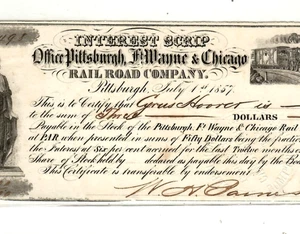 INTEREST SCRIP
Office Pittsburgh, Ft. Wayne & Chicago
RAIL ROAD COMPANY.
Pittsburgh, July 1st 1857.
This is to Certify that Cyrus Hoover is
to the sum of Three DOLLARS
Payable in the Stock of the Pittsburgh, Ft. Wayne & Chicago Rail
at PAR when presented in sums of Fifty Dollars being the fraction
the Interest at Six per cent accrued for the last Twelve months
Share of Stock held by declared as payable this day by the Bo
This Certificate is transferable by endorsement.